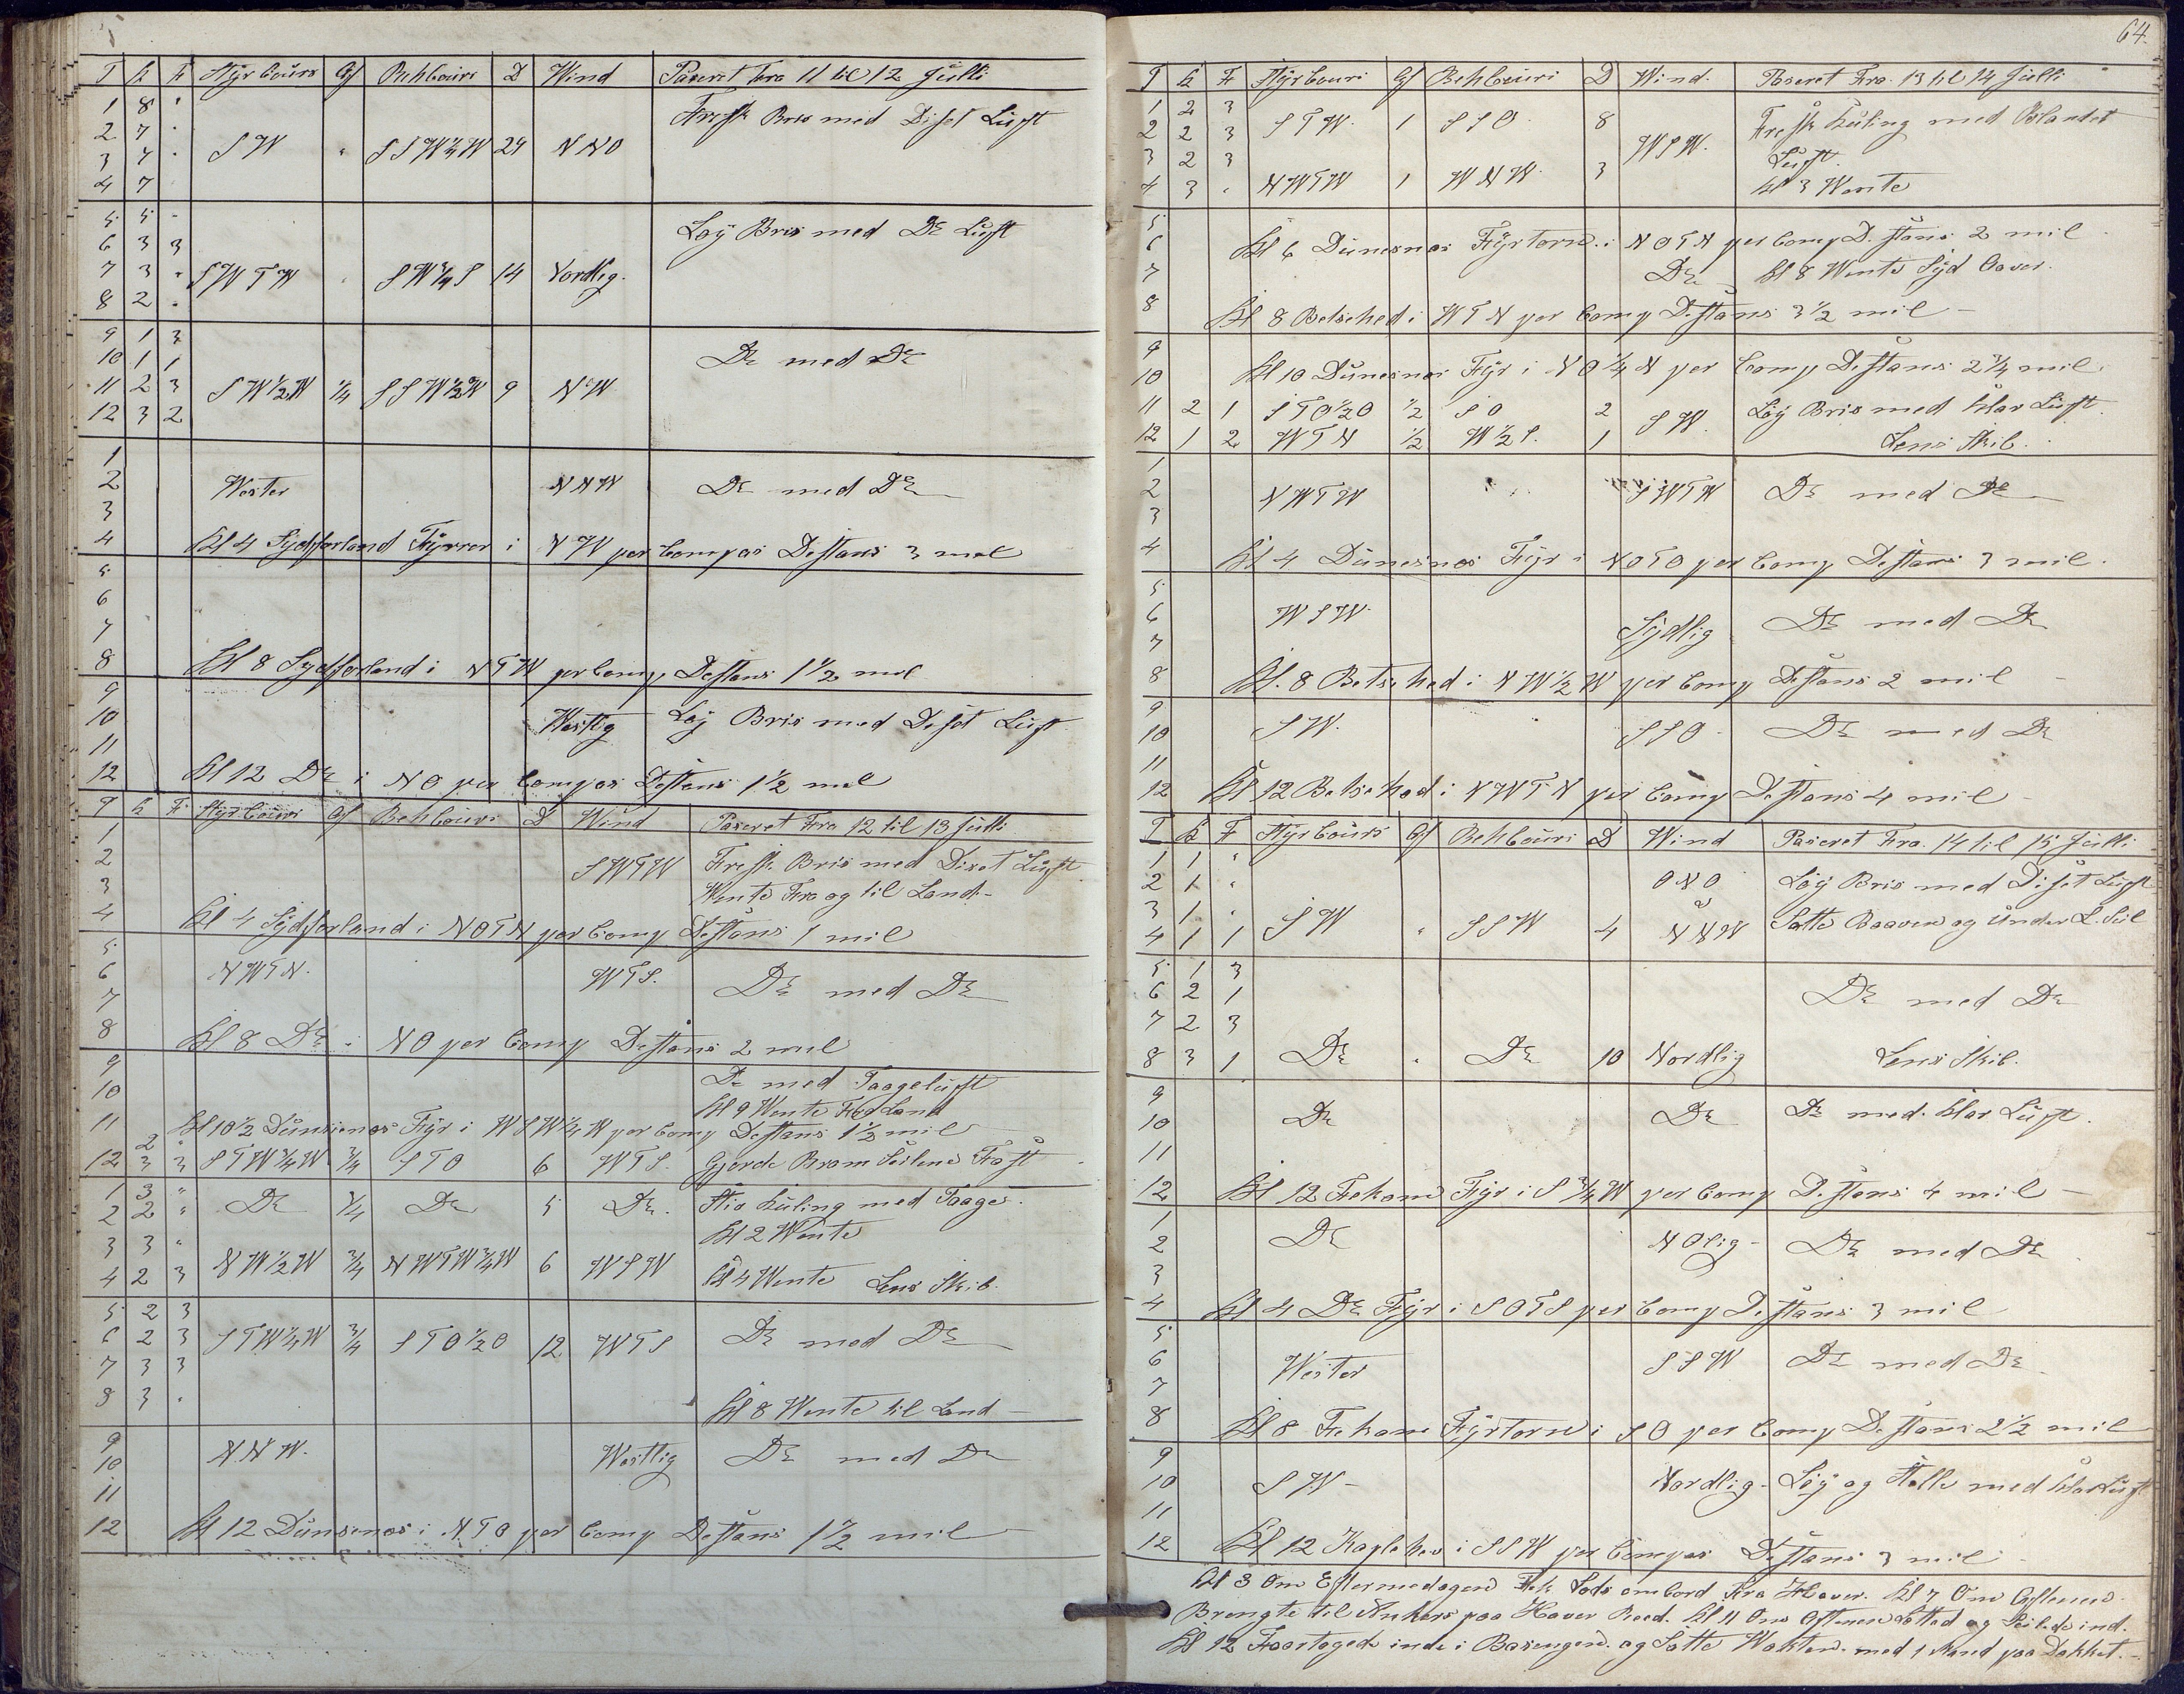 T K F Styrcours Gf Behcours D Wind Paseret Fra 11 til 12 Julli
1 8 "
2 7 " Fresk Bris med Diset Luft
3 7 " SW " SSW¼W 29 NNO
4 7
5 5 -
6 3 3 Løy Bris med Do Luft
7 3 " SWTW " SW¾S 14 Nordlig.
8 2 "
9 1 3
10 1 1 Do med Do
11 2 3 SW½W ¼ SSW½W 9 NW
12 3 2
1
2 Wester NNW Do med Do
3
4 Kl 4 Sydforland Fyrrer i NW per Compas Destans 3 mil
5
6
7
8 Kl 8 Sydforland i NTW per Comp Destans 1½ mil
9
10 Westlig Løy Bris med Diset Luft
11
12 Kl 12 Do i NO per Compas Destans 1½ mil
T K F Styrcours Gf Behcours D Wind Paseret Fra 12 til 13 Julli
1
2 SWTW Fresk Bris med Diset Luft
3 Wente Fra og til Land -
4 Kl 4 Sydforland i NOTN per Comp Destans 1 mil
5
6 NWTN. WTS. Do med Do
7
8 Kl 8 Do i NO per Comp Destans 2 mil
9 Do med Taageluft
10 Kl 9 Wente Fra Land
11 Kl 10½ Dunsenes Fyr i WSW¼W per Comp Destans 1½ mil
2 "
12 3 3 STW¾W ¾ STO 6 WTS. Gjorde Bram Seilene Fast
1 3 "
2 2 " Do ¾ Do 5 Do. Stiv Kuling med Taage.
Kl 2 Wente
3 3 " NW½W ¾ NWTW¾W 6 WSW
4 2 3 Kl 4 Wente Lens Skib.
5 2 3
6 2 3 STW¼W ¾ STO½O 12 WTS Do med Do
7 3 3
8 3 " Kl 8 Wente til Land -
9
10 NNW. Westlig Do med Do
11
12 Kl 12 Dunsenes i NTO per Comp Destans 1½ mil
64.
T K F Styrcours Gf Behcours D Wind. Paseret Fra. 13 til 14 Julli
1 2 3
2 2 3 STW. 1 SSO. 8 Fresk Kuling med Blandet
3 2 3 WSW. Luft.
4 3 " NWTW 1 WNW. 3 Kl 3 Wente
5
6 Kl 6 Dunesnes Fyrtorn i NOTN per Comp Destans 2 mil
7 Do Kl 8 Wente Syd Over.
8 Kl 8 Betsehed i WTN per Comp Destans 3½ mil -
9
10 Kl 10 Dunesnes Fyr i NO¼N per Comp Destans 2¼ mil.
11 2 1 STO½O ½ SO 2 SW. Løy Bris med Klar Luft.
12 1 2 WTN ½ W½S. 1 Lens Skib.
1
2 NWTW SWTW Do med Do
3
4 Kl 4 Dunesnes Fyr i NOTO per Comp Destans 3 mil.
5
6 WSW. Sydlig Do med Do
7
8 Kl. 8 Betsehed i NW½W per Comp Destans 2 mil -
9
10 SW. SSO. Do med Do
11
12 Kl 12 Betsehed i NWTN per Comp Destans 4 mil -
T K F Styrcours Gf Behcours D Wind Paseret Fra. 14 til 15 Julli
1 1 "
2 1 " ONO Løy Bris med Diset Luft
3 1 " SW " SSW 4 Satte Boaven og Under L. Seil
4 1 1 NNW
5 1 3
6 2 1 Do med Do
7 2 3
8 3 1 Do " Do 10 Nordlig Lens Skib.
9
10 Do Do Do med. Klar Luft.
11
12 Kl 12 Fekam Fyr i S¾W per Comp Destans 4 mil -
1
2 Do NOlig - Do med Do
3
4 Kl 4 Do Fyr i SOTS per Comp Destans 3 mil
5
6 Wester SSW Do med Do
7
8 Kl 8 Fekam Fyrtorn i SO per Comp Destans 2½ mil
9
10 SW - Nordlig - Løy og Stille med Klar Luft
11
12 Kl 12 Kaplehev i SSW per Compas Destans 3 mil
Kl 3 Om Eftermedagen Fik Lods ombord Fra Haver. Kl 7 Om Aftenen
Brengte til Ankers paa Haver Reed. Kl 11 Om Aftenen Letted og Seilede ind.
Kl 12 Faartogede inde i Basengen. og Satte Wakten. med 1 Mand paa Dækket. -